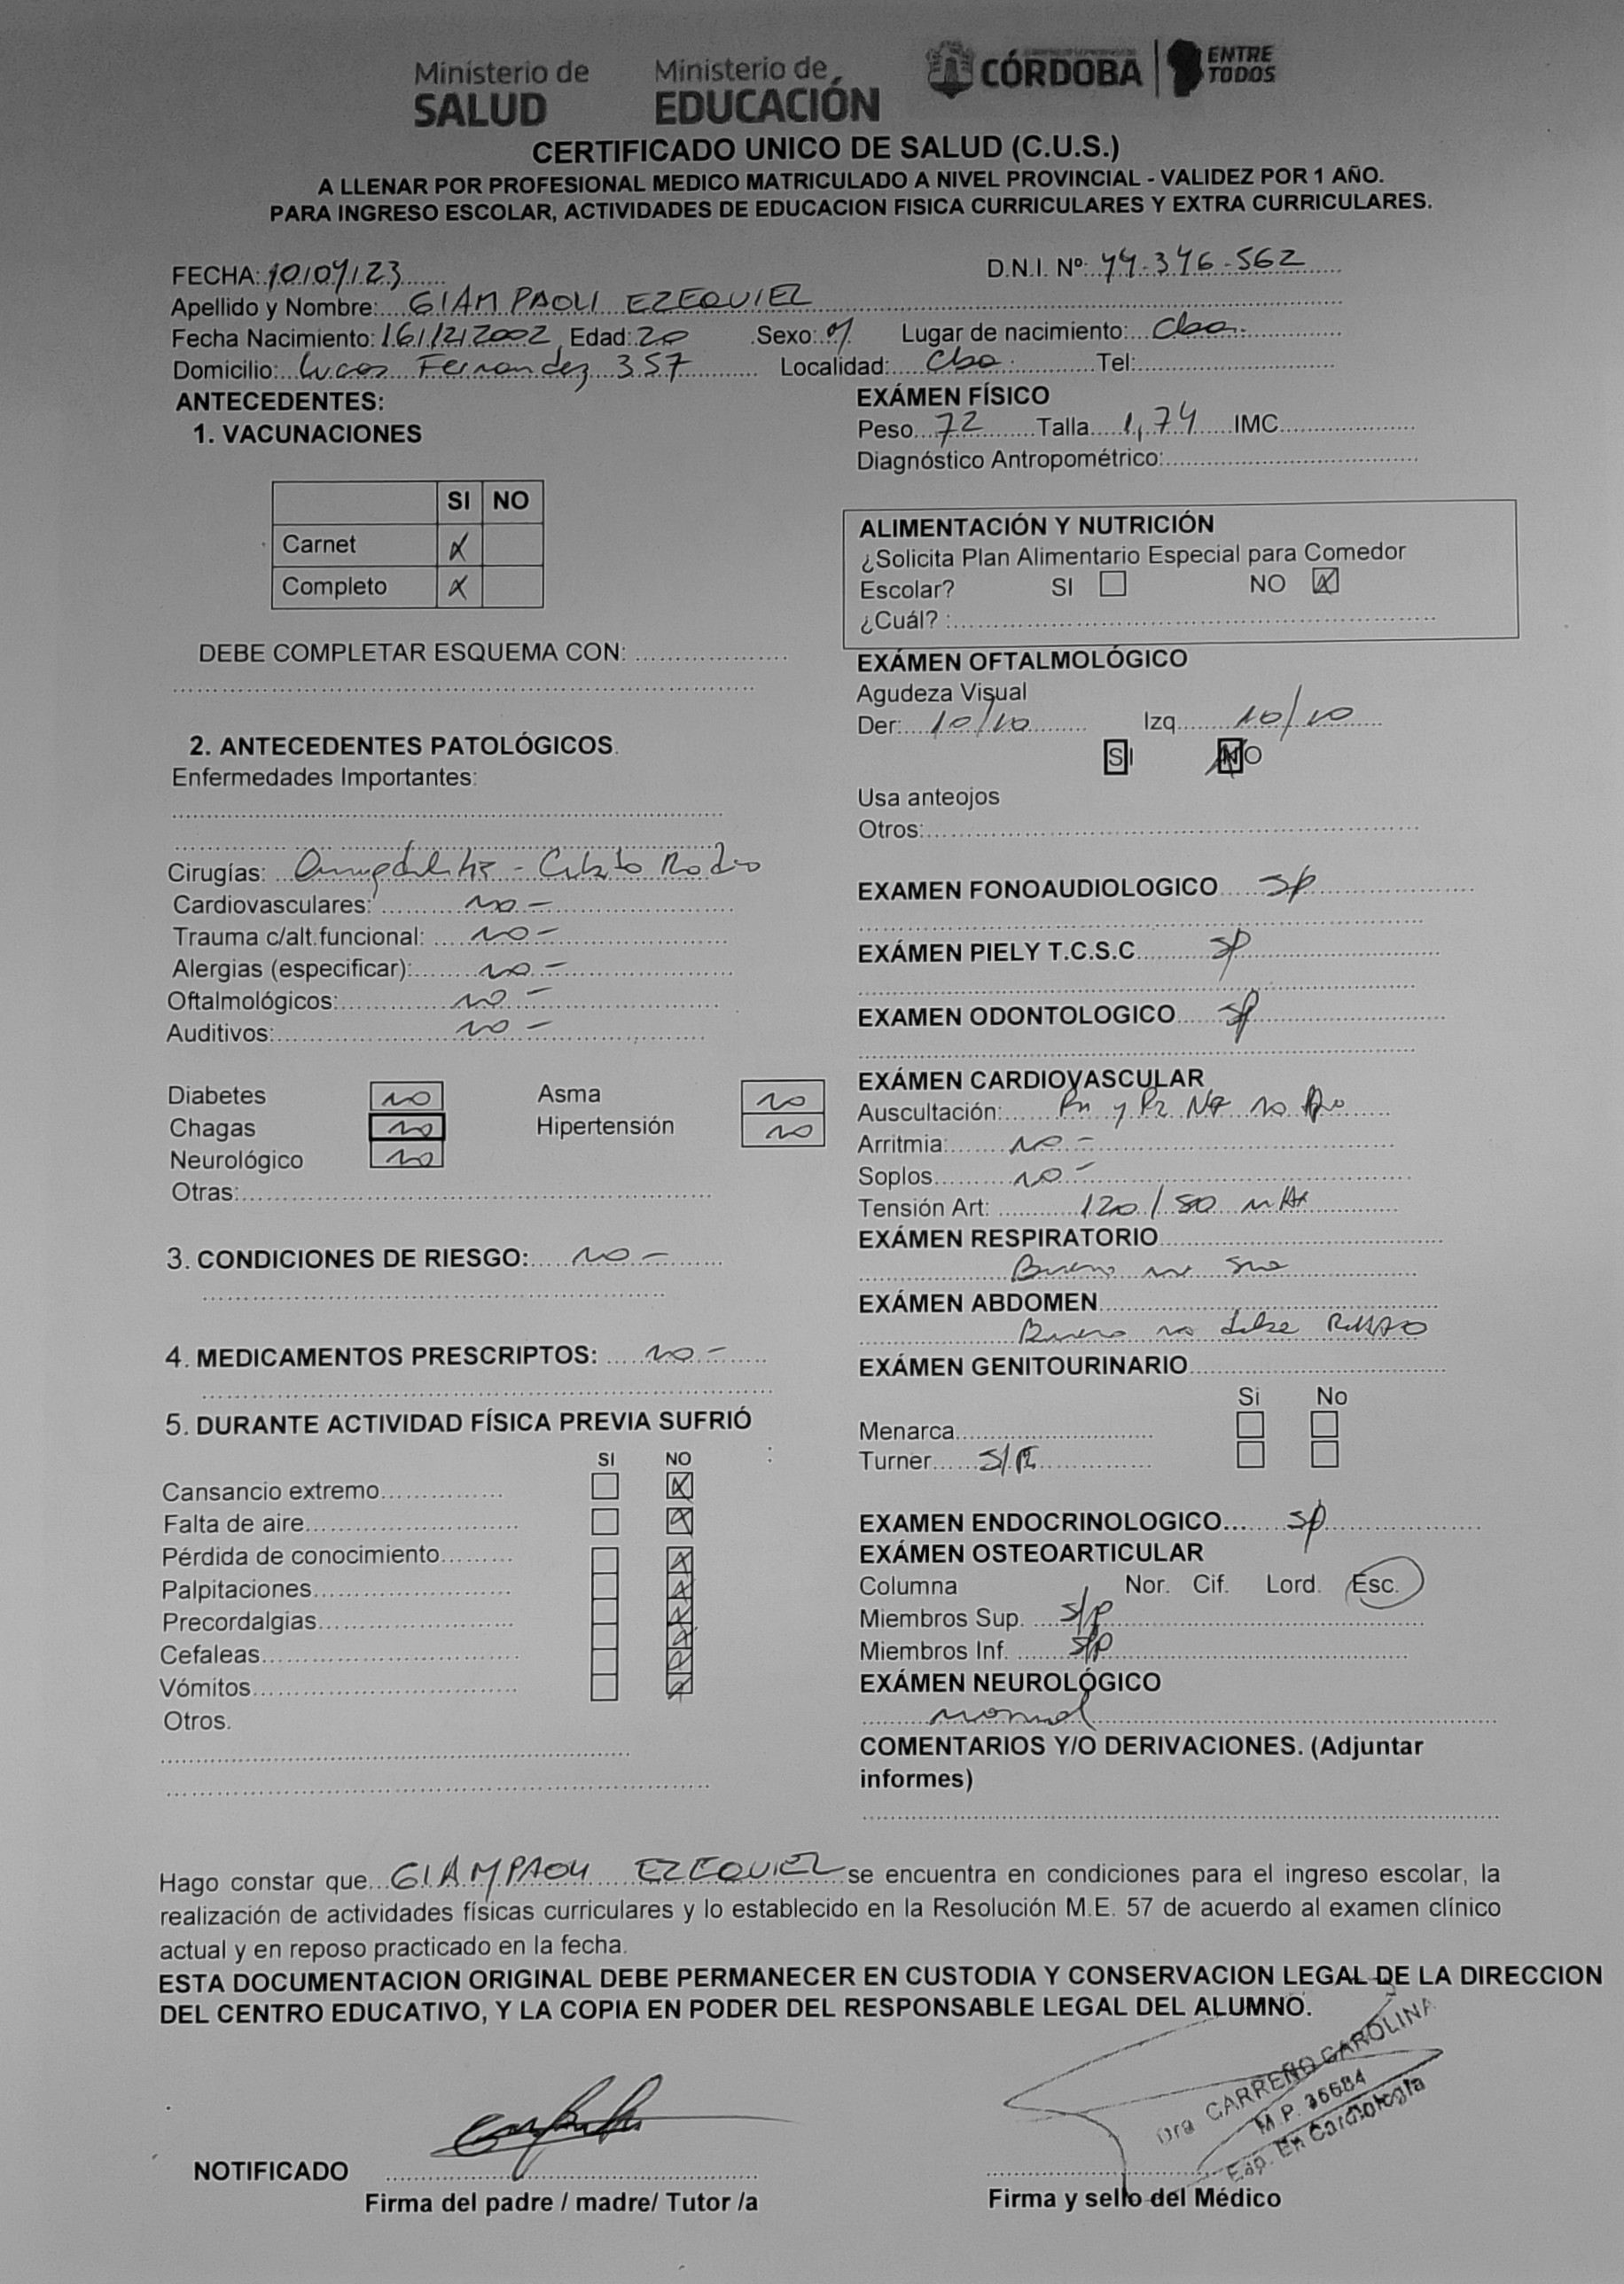 Ministerio de SALUD
Ministerio de EDUCACIÓN
CÓRDOBA
ENTRE TODOS
CERTIFICADO UNICO DE SALUD (C.U.S.)
A LLENAR POR PROFESIONAL MEDICO MATRICULADO A NIVEL PROVINCIAL - VALIDEZ POR 1 AÑO.
PARA INGRESO ESCOLAR, ACTIVIDADES DE EDUCACION FISICA CURRICULARES Y EXTRA CURRICULARES.
FECHA: 10/04/23
D.N.I. Nº: 44-346-562
Apellido y Nombre: GIAMPAOLI EZEQUIEL
Fecha Nacimiento: 16/12/2002 Edad: 20 Sexo: Lugar de nacimiento: Cba.
Domicilio: Lucas Fernandez 357 Localidad: Cba. Tel:
ANTECEDENTES:
1. VACUNACIONES
SI NO
Carnet X
Completo X
DEBE COMPLETAR ESQUEMA CON:
2. ANTECEDENTES PATOLÓGICOS.
Enfermedades Importantes:
Cirugías:
Cardiovasculares: no -
Trauma c/alt.funcional: no -
Alergias (especificar): no -
Oftalmológicos: no -
Auditivos: no -
Diabetes no Asma no
Chagas no Hipertensión no
Neurológico no
Otras:
3. CONDICIONES DE RIESGO: no -
4. MEDICAMENTOS PRESCRIPTOS: no -
5. DURANTE ACTIVIDAD FÍSICA PREVIA SUFRIÓ
SI NO
Cansancio extremo X
Falta de aire X
Pérdida de conocimiento X
Palpitaciones X
Precordalgias X
Cefaleas X
Vómitos X
Otros.
EXÁMEN FÍSICO
Peso 72 Talla 1,74 IMC
Diagnóstico Antropométrico:
ALIMENTACIÓN Y NUTRICIÓN
¿Solicita Plan Alimentario Especial para Comedor
Escolar? SI NO X
¿Cuál? :
EXÁMEN OFTALMOLÓGICO
Agudeza Visual
Der: 10/10 Izq 10/10
SI NO
Usa anteojos
Otros:
EXAMEN FONOAUDIOLOGICO sp
EXÁMEN PIELY T.C.S.C sp
EXAMEN ODONTOLOGICO sp
EXÁMEN CARDIOVASCULAR
Auscultación:
Arritmia: no -
Soplos no -
Tensión Art: 120/80
EXÁMEN RESPIRATORIO
Buena
EXÁMEN ABDOMEN
no
EXÁMEN GENITOURINARIO
Si No
Menarca
Turner
EXAMEN ENDOCRINOLOGICO... sp
EXÁMEN OSTEOARTICULAR
Columna Nor. Cif. Lord. Esc.
Miembros Sup. s/p
Miembros Inf. s/p
EXÁMEN NEUROLÓGICO
normal
COMENTARIOS Y/O DERIVACIONES. (Adjuntar
informes)
Hago constar que GIAMPAOLI EZEQUIEL se encuentra en condiciones para el ingreso escolar, la
realización de actividades físicas curriculares y lo establecido en la Resolución M.E. 57 de acuerdo al examen clínico
actual y en reposo practicado en la fecha.
ESTA DOCUMENTACION ORIGINAL DEBE PERMANECER EN CUSTODIA Y CONSERVACION LEGAL DE LA DIRECCION
DEL CENTRO EDUCATIVO, Y LA COPIA EN PODER DEL RESPONSABLE LEGAL DEL ALUMNO.
Dra CARREÑO CAROLINA
M.P. 36684
Esp. En Cardiología
NOTIFICADO
Firma del padre / madre/ Tutor /a
Firma y sello del Médico